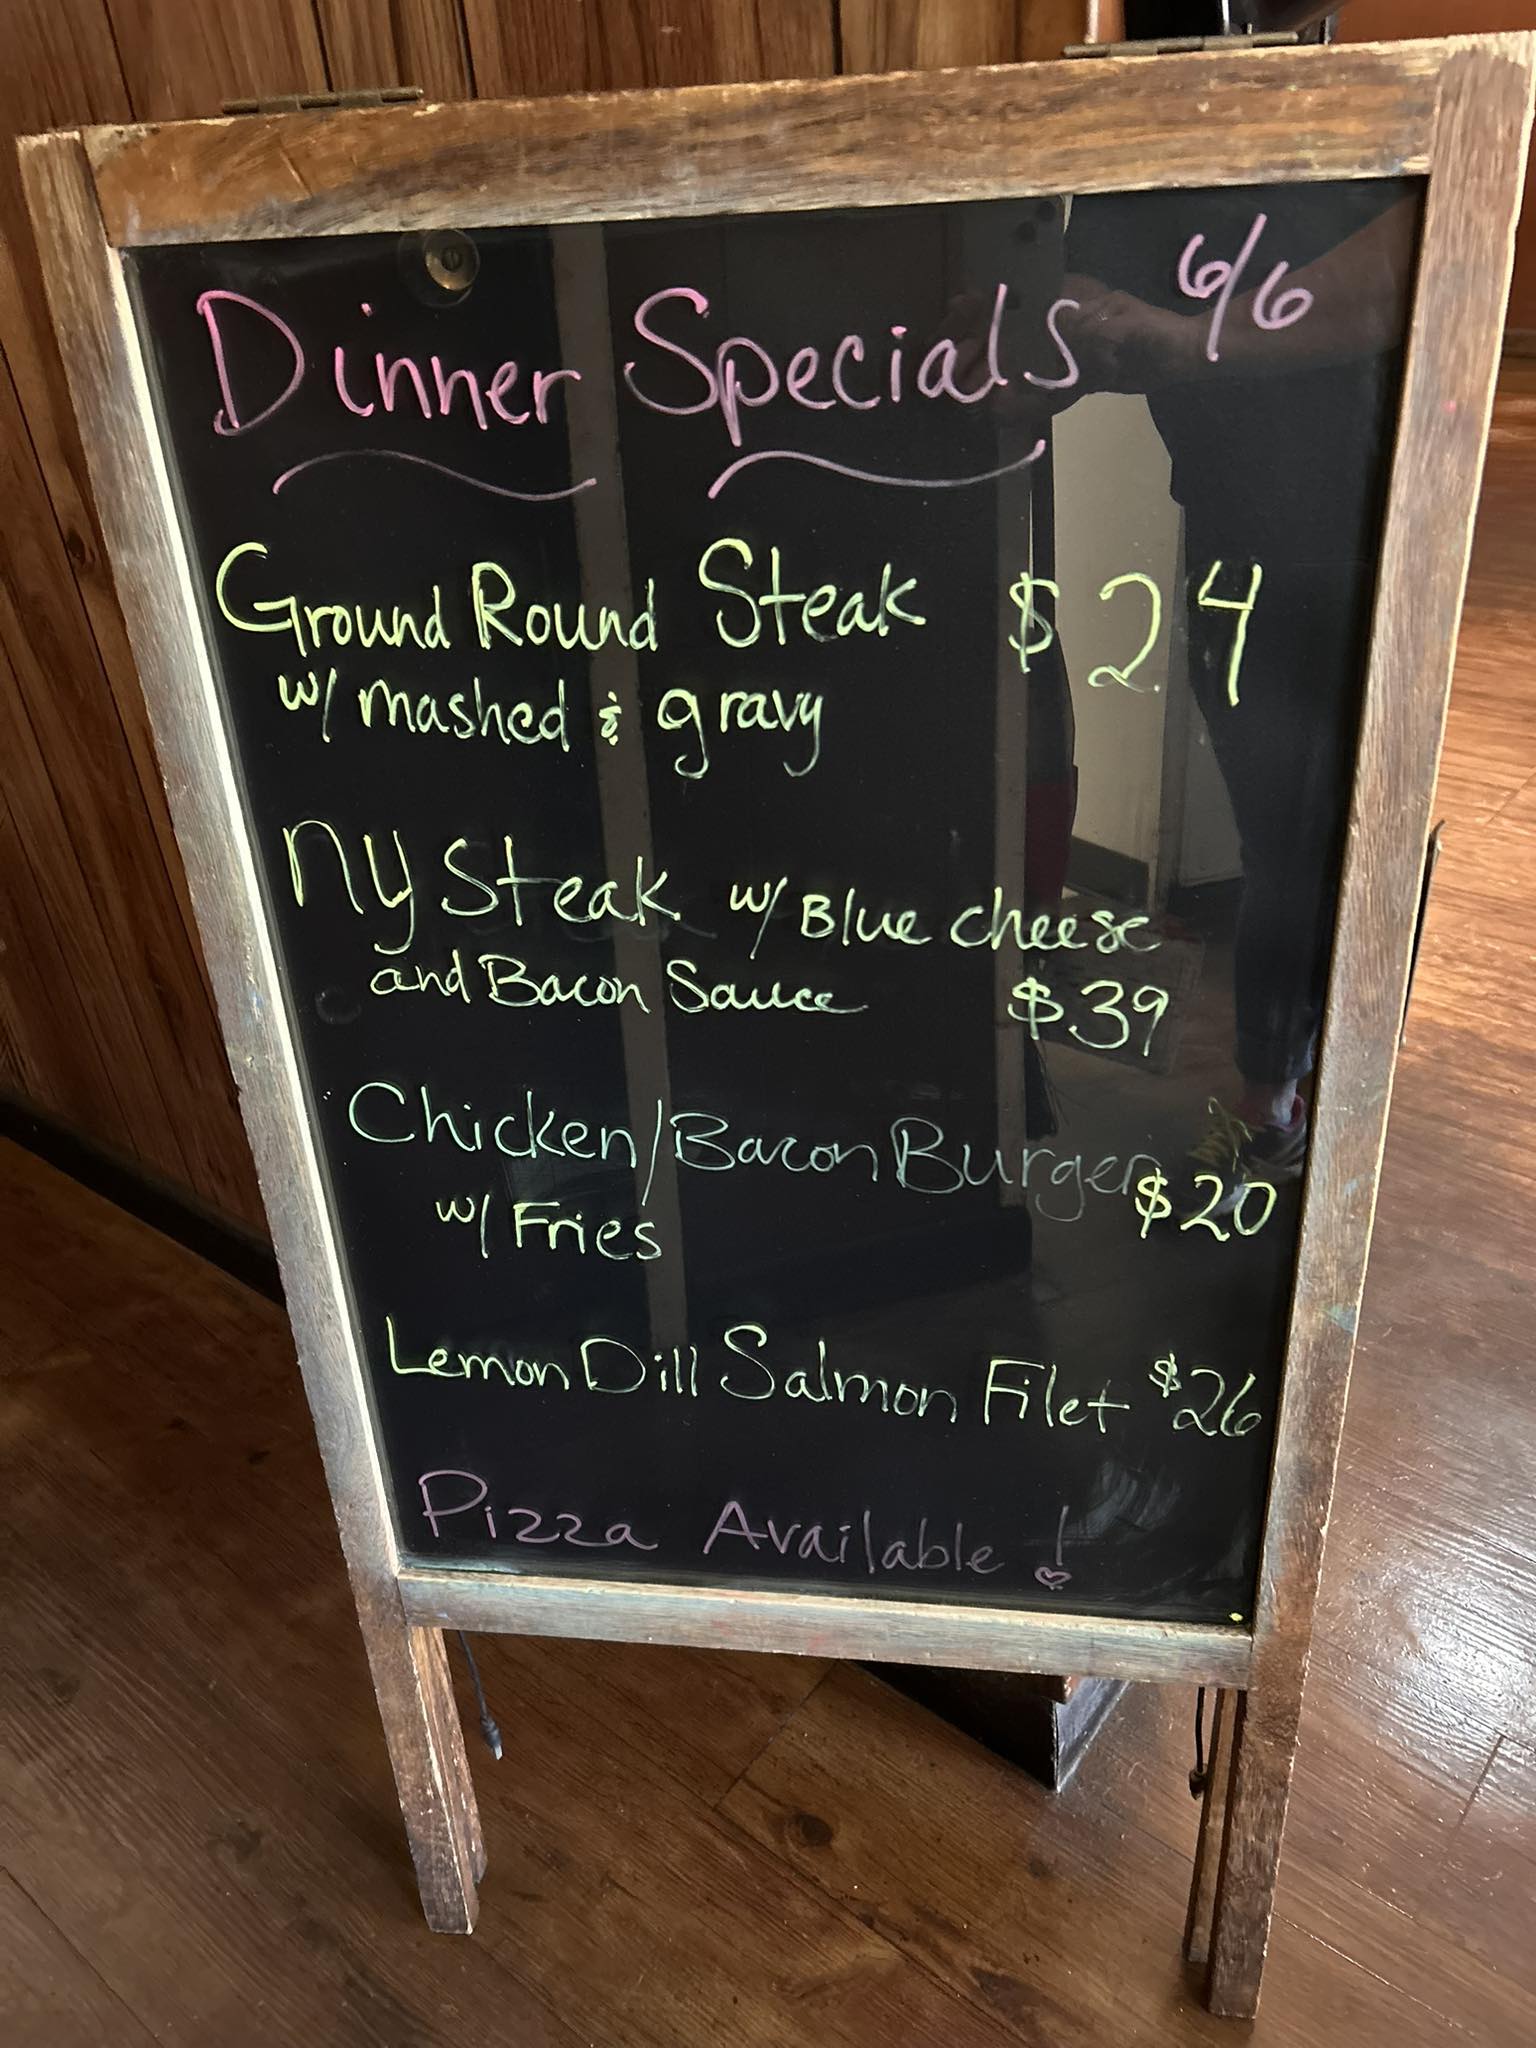 6/6
Dinner Specials
Ground Round Steak $24
w/ mashed & gravy
NY Steak w/ Blue cheese
and Bacon Sauce $39
Chicken/Bacon Burger $20
w/ Fries
Lemon Dill Salmon Filet $26
Pizza Available!